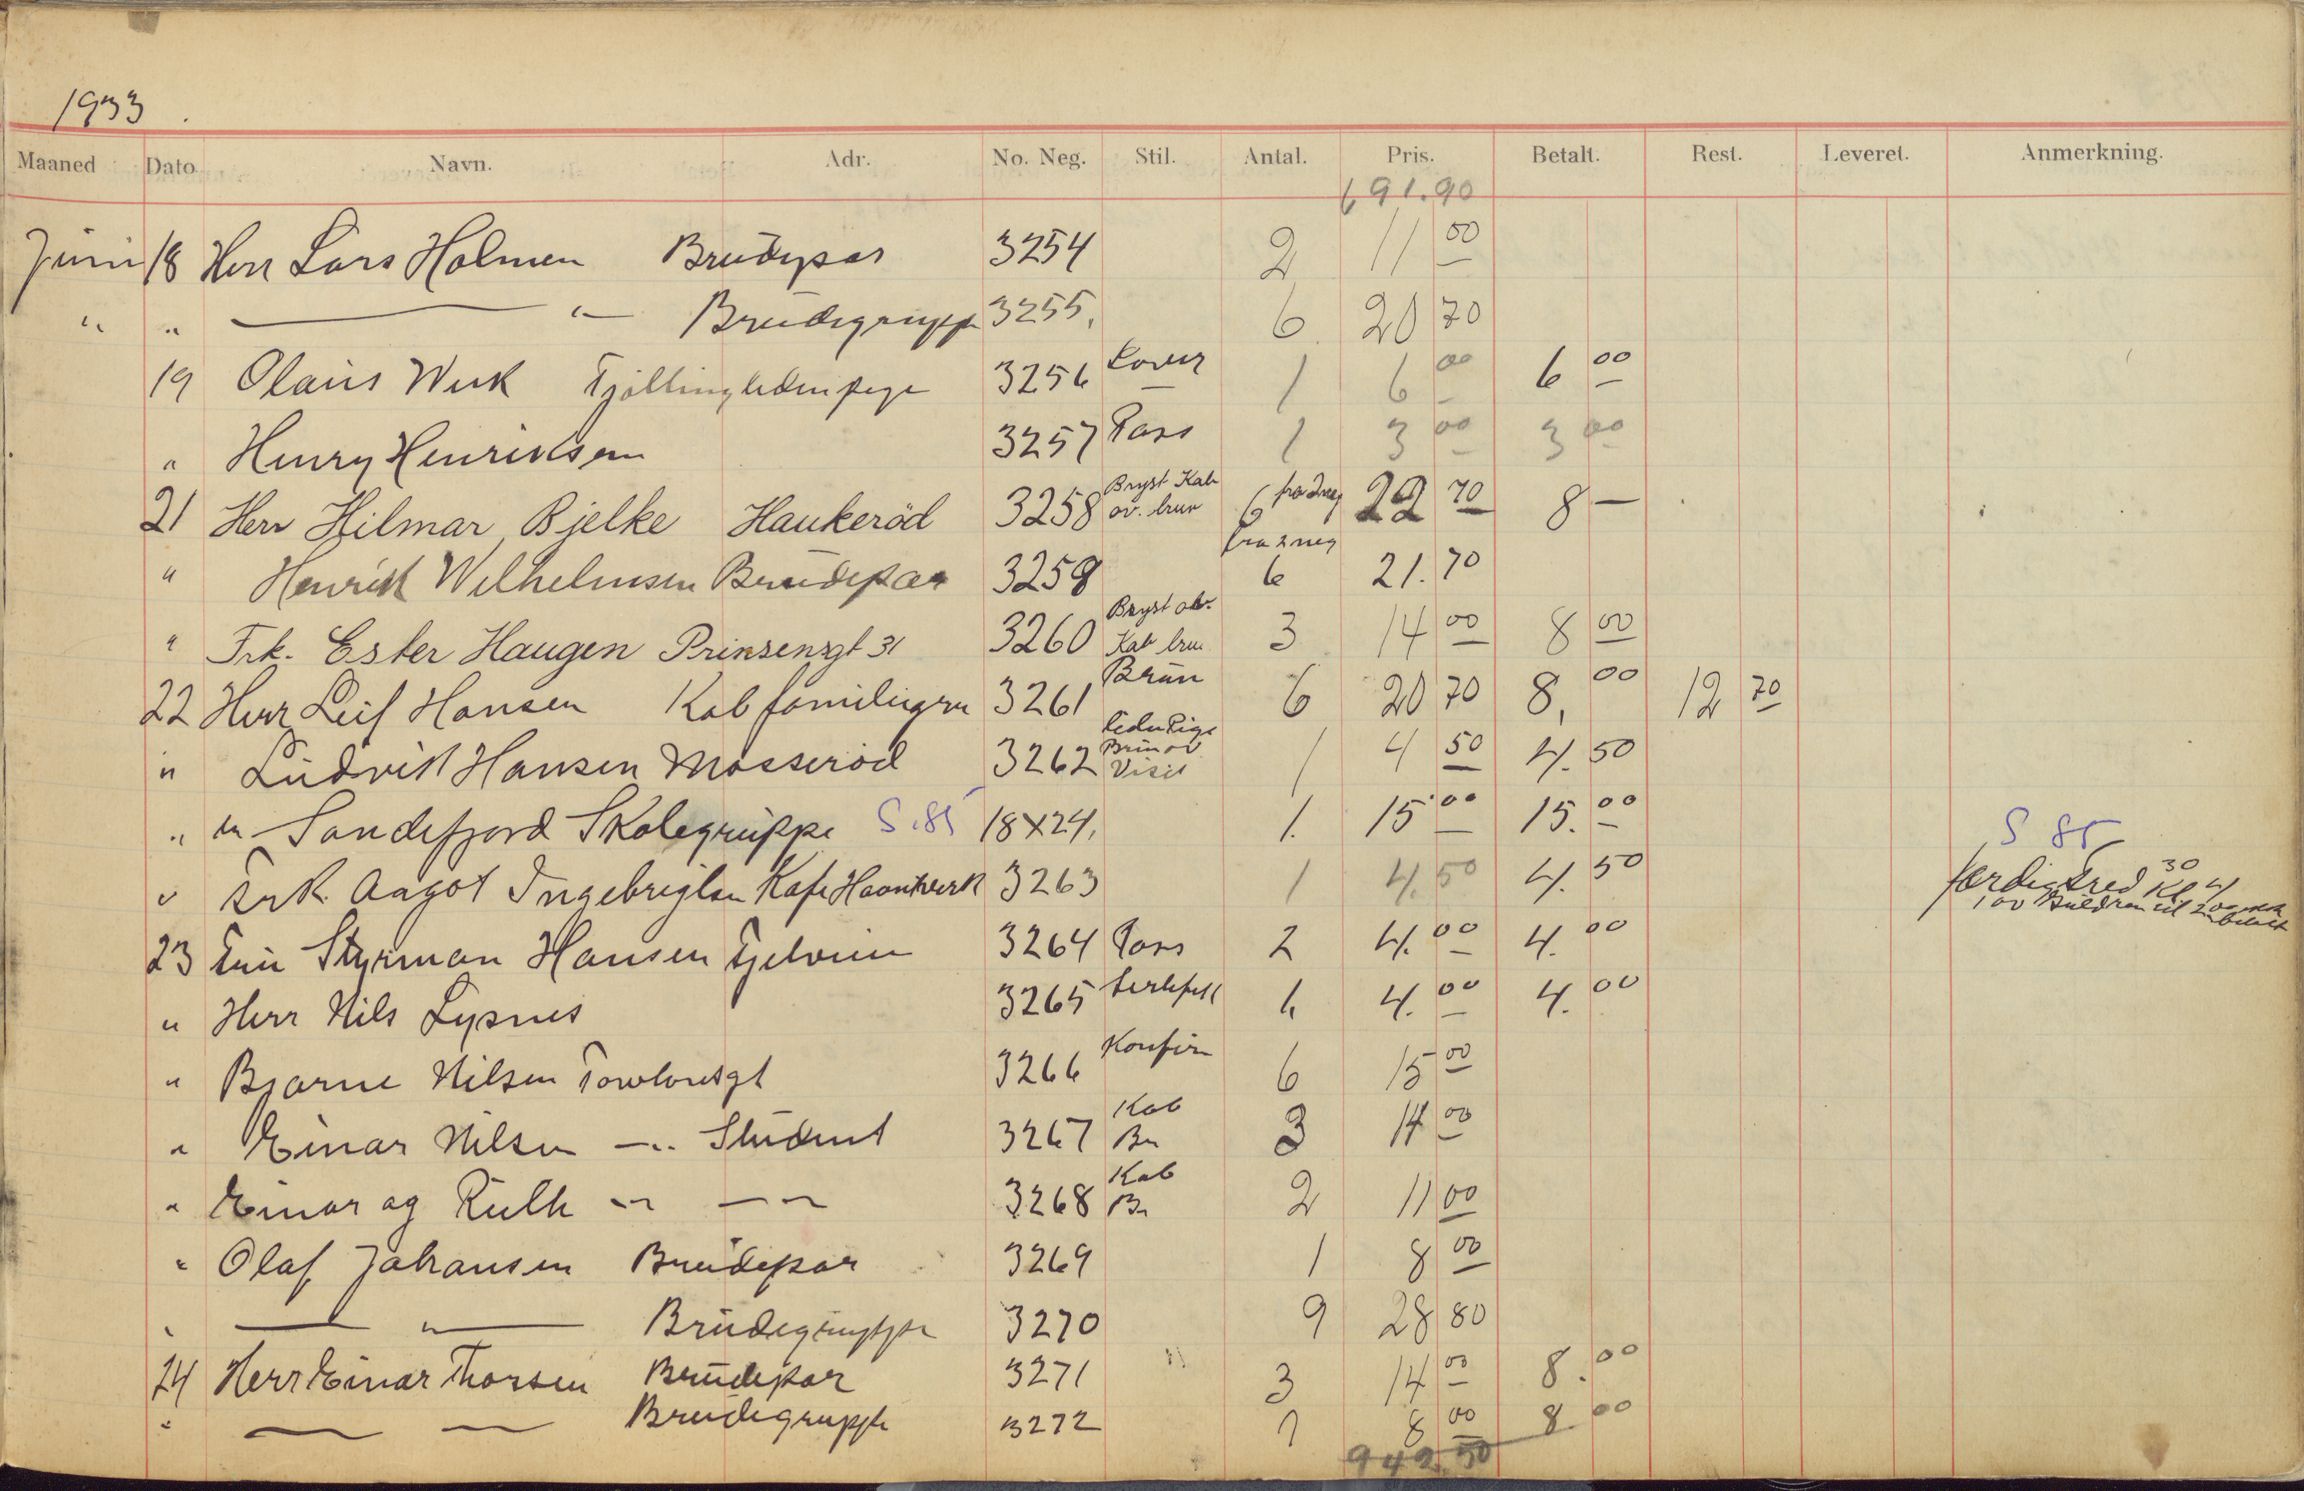 1933.
Maaned Dato Navn. Adr. No. Neg. Stil. Antal. Pris. Betalt. Rest. Leveret. Anmerkning.
691.90
Juni 18 Herr Lars Holmen Brudepar 3254 2 11 00
" " — " — Brudegruppe 3255. 6 20 70
19 Olaus Wirk Tjølling 3256 1 6 00 6 00
" Henry Henriksen 3257 Pass 1 3 00 3 00
21 Herr Hilmar Bjelke Haukeröd 3258 Bryst Kab ov. brun 6 fra 2 neg 22 70 8 —
" Henrik Wilhelmsen Brudepar 3259 fra 2 neg 6 21.70
" Frk. Ester Haugen Prinsensgt 31 3260 Bryst ov. Kab brun 3 14 00 8 00
22 Herr Leif Hansen Kab familiegru 3261 Brun 6 20 70 8, 00 12 70
" Ludvik Hansen Mosserød 3262 Visit 1 4 50 4. 50
" " Sandefjord Skolegruppe S. 85 18X24, 1. 15 00 15. 00 S 85
" Frk. Aagot Ingebrigtsen Kafe 3263 1 4. 50 4. 50 færdig Fred 30 Kl 4
23 Fru Styrman Hansen Fjelvin 3264 Pass 2 4. 00 4. 00
" Herr Nils Lysnes 3265 1, 4. 00 4. 00
" Bjarne Nilsen 3266 Konfirm 6 15 00
" Einar Nilsen —"— Student 3267 Kab Br 3 14 00
" Einar og Ruth —"— —"— 3268 Kab Br 2 11 00
" Olaf Johansen Brudepar 3269 1 8 00
" — " — Brudegruppe 3270 9 28 80
24 Herr Einar Thorsen Brudepar 3271 " 3 14 00 8. 00
" — — Brudegruppe 3272 1 8 00 8 00
942.50